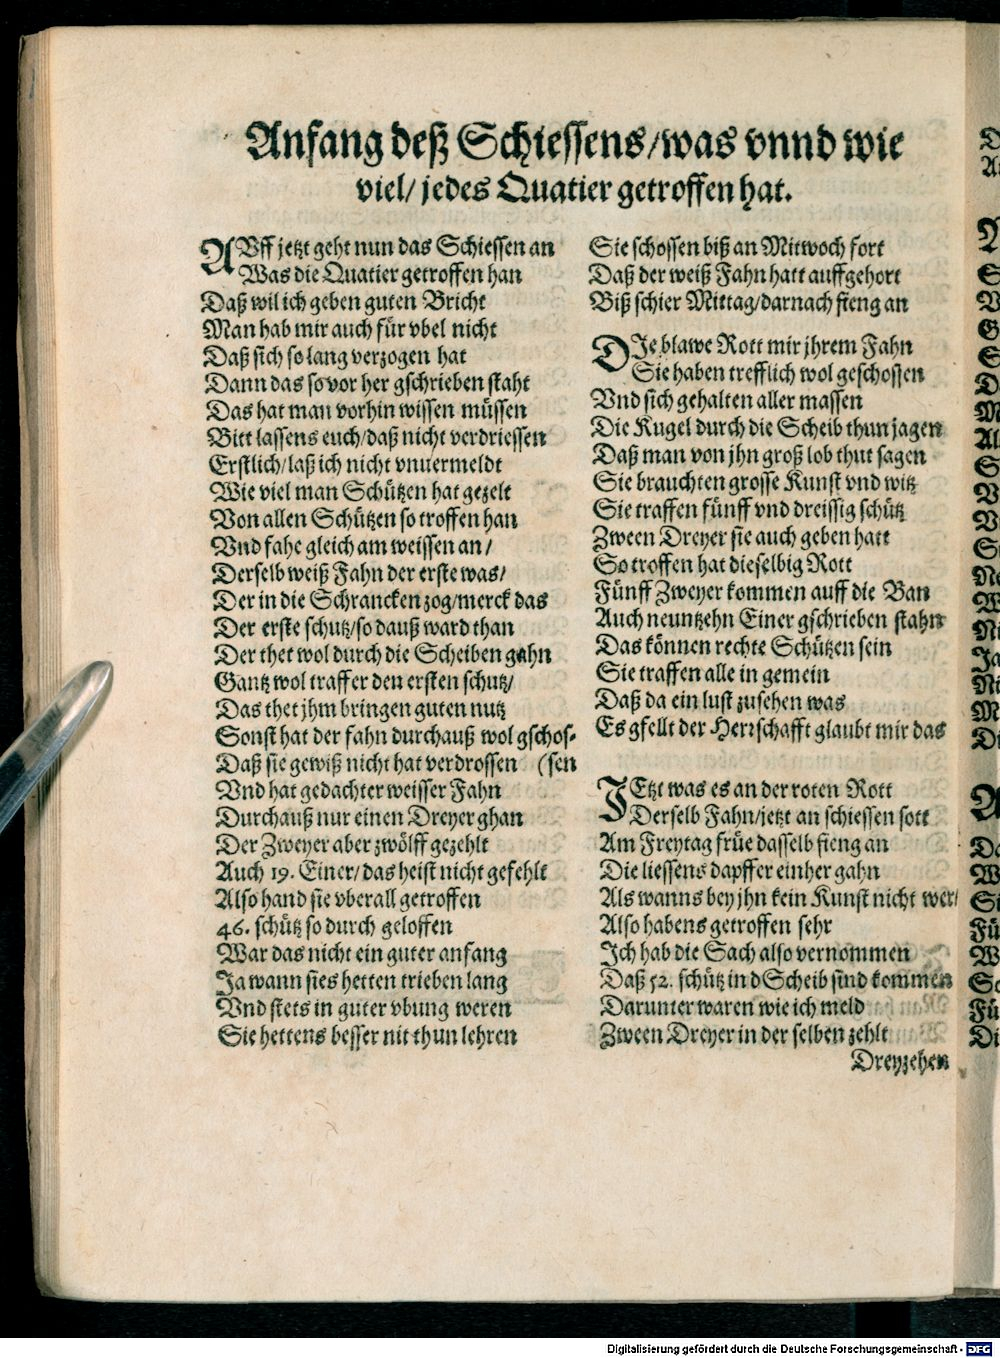 Anfang deß Schiessens/was vnnd wie
viel/ jedes Quatier getroffen hat.
AVff jetzt geht nun das Schiessen an
Was die Quatier getroffen han
Daß wil ich geben guten Bricht
Man hab mir auch für vbel nicht
Daß sich so lang verzogen hat
Dann das so vor her gschrieben staht
Das hat man vorhin wissen müssen
Bitt lassens euch/daß nicht verdriessen
Erstlich/laß ich nicht vnuermeldt
Wie viel man Schützen hat gezelt
Von allen Schützen so troffen han
Vnd fahe gleich am weissen an/
Derselb weiß Fahn der erste was/
Der in die Schrancken zog/merck das
Der erste schutz/so dauß ward than
Der thet wol durch die Scheiben gahn
Gantz wol traff er den ersten schutz/
Das thet jhm bringen guten nutz
Sonst hat der fahn durchauß wol gschos-
Daß sie gewiß nicht hat verdrossen (sen
Vnd hat gedachter weisser Fahn
Durchauß nur einen Dreyer ghan
Der Zweyer aber zwölff gezehlt
Auch 19. Einer/das heist nicht gefehlt
Also hand sie vberall getroffen
46. schütz so durch geloffen
War das nicht ein guter anfang
Ja wann sies hetten trieben lang
Vnd stets in guter vbung weren
Sie hettens besser nit thun lehren
Sie schossen biß an Mittwoch fort
Daß der weiß Fahn hatt auffgehort
Biß schier Mittag/darnach fieng an
DJe blawe Rott mir jhrem Fahn
Sie haben trefflich wol geschossen
Vnd sich gehalten aller massen
Die Kugel durch die Scheib thun jagen
Daß man von jhn groß lob thut sagen
Sie brauchten grosse Kunst vnd witz
Sie traffen fünff vnd dreissig schütz
Zween Dreyer sie auch geben hatt
So troffen hat dieselbig Rott
Fünff Zweyer kommen auff die Ban
Auch neuntzehn Einer gschrieben stahn
Das können rechte Schützen sein
Sie traffen alle in gemein
Daß da ein lust zusehen was
Es gfellt der Herrschafft glaubt mir das
JEtzt was es an der roten Rott
Derselb Fahn/jetzt an schiessen sott
Am Freytag früe dasselb fieng an
Die liessens dapffer einher gahn
Als wanns bey jhn kein Kunst nicht wer/
Also habens getroffen sehr
Jch hab die Sach also vernommen
Daß 52. schütz in dScheib sind kommen
Darunter waren wie ich meld
Zween Dreyer in der selben zehlt
Dreyzehen
Digitalisierung gefördert durch die Deutsche Forschungsgemeinschaft - DFG